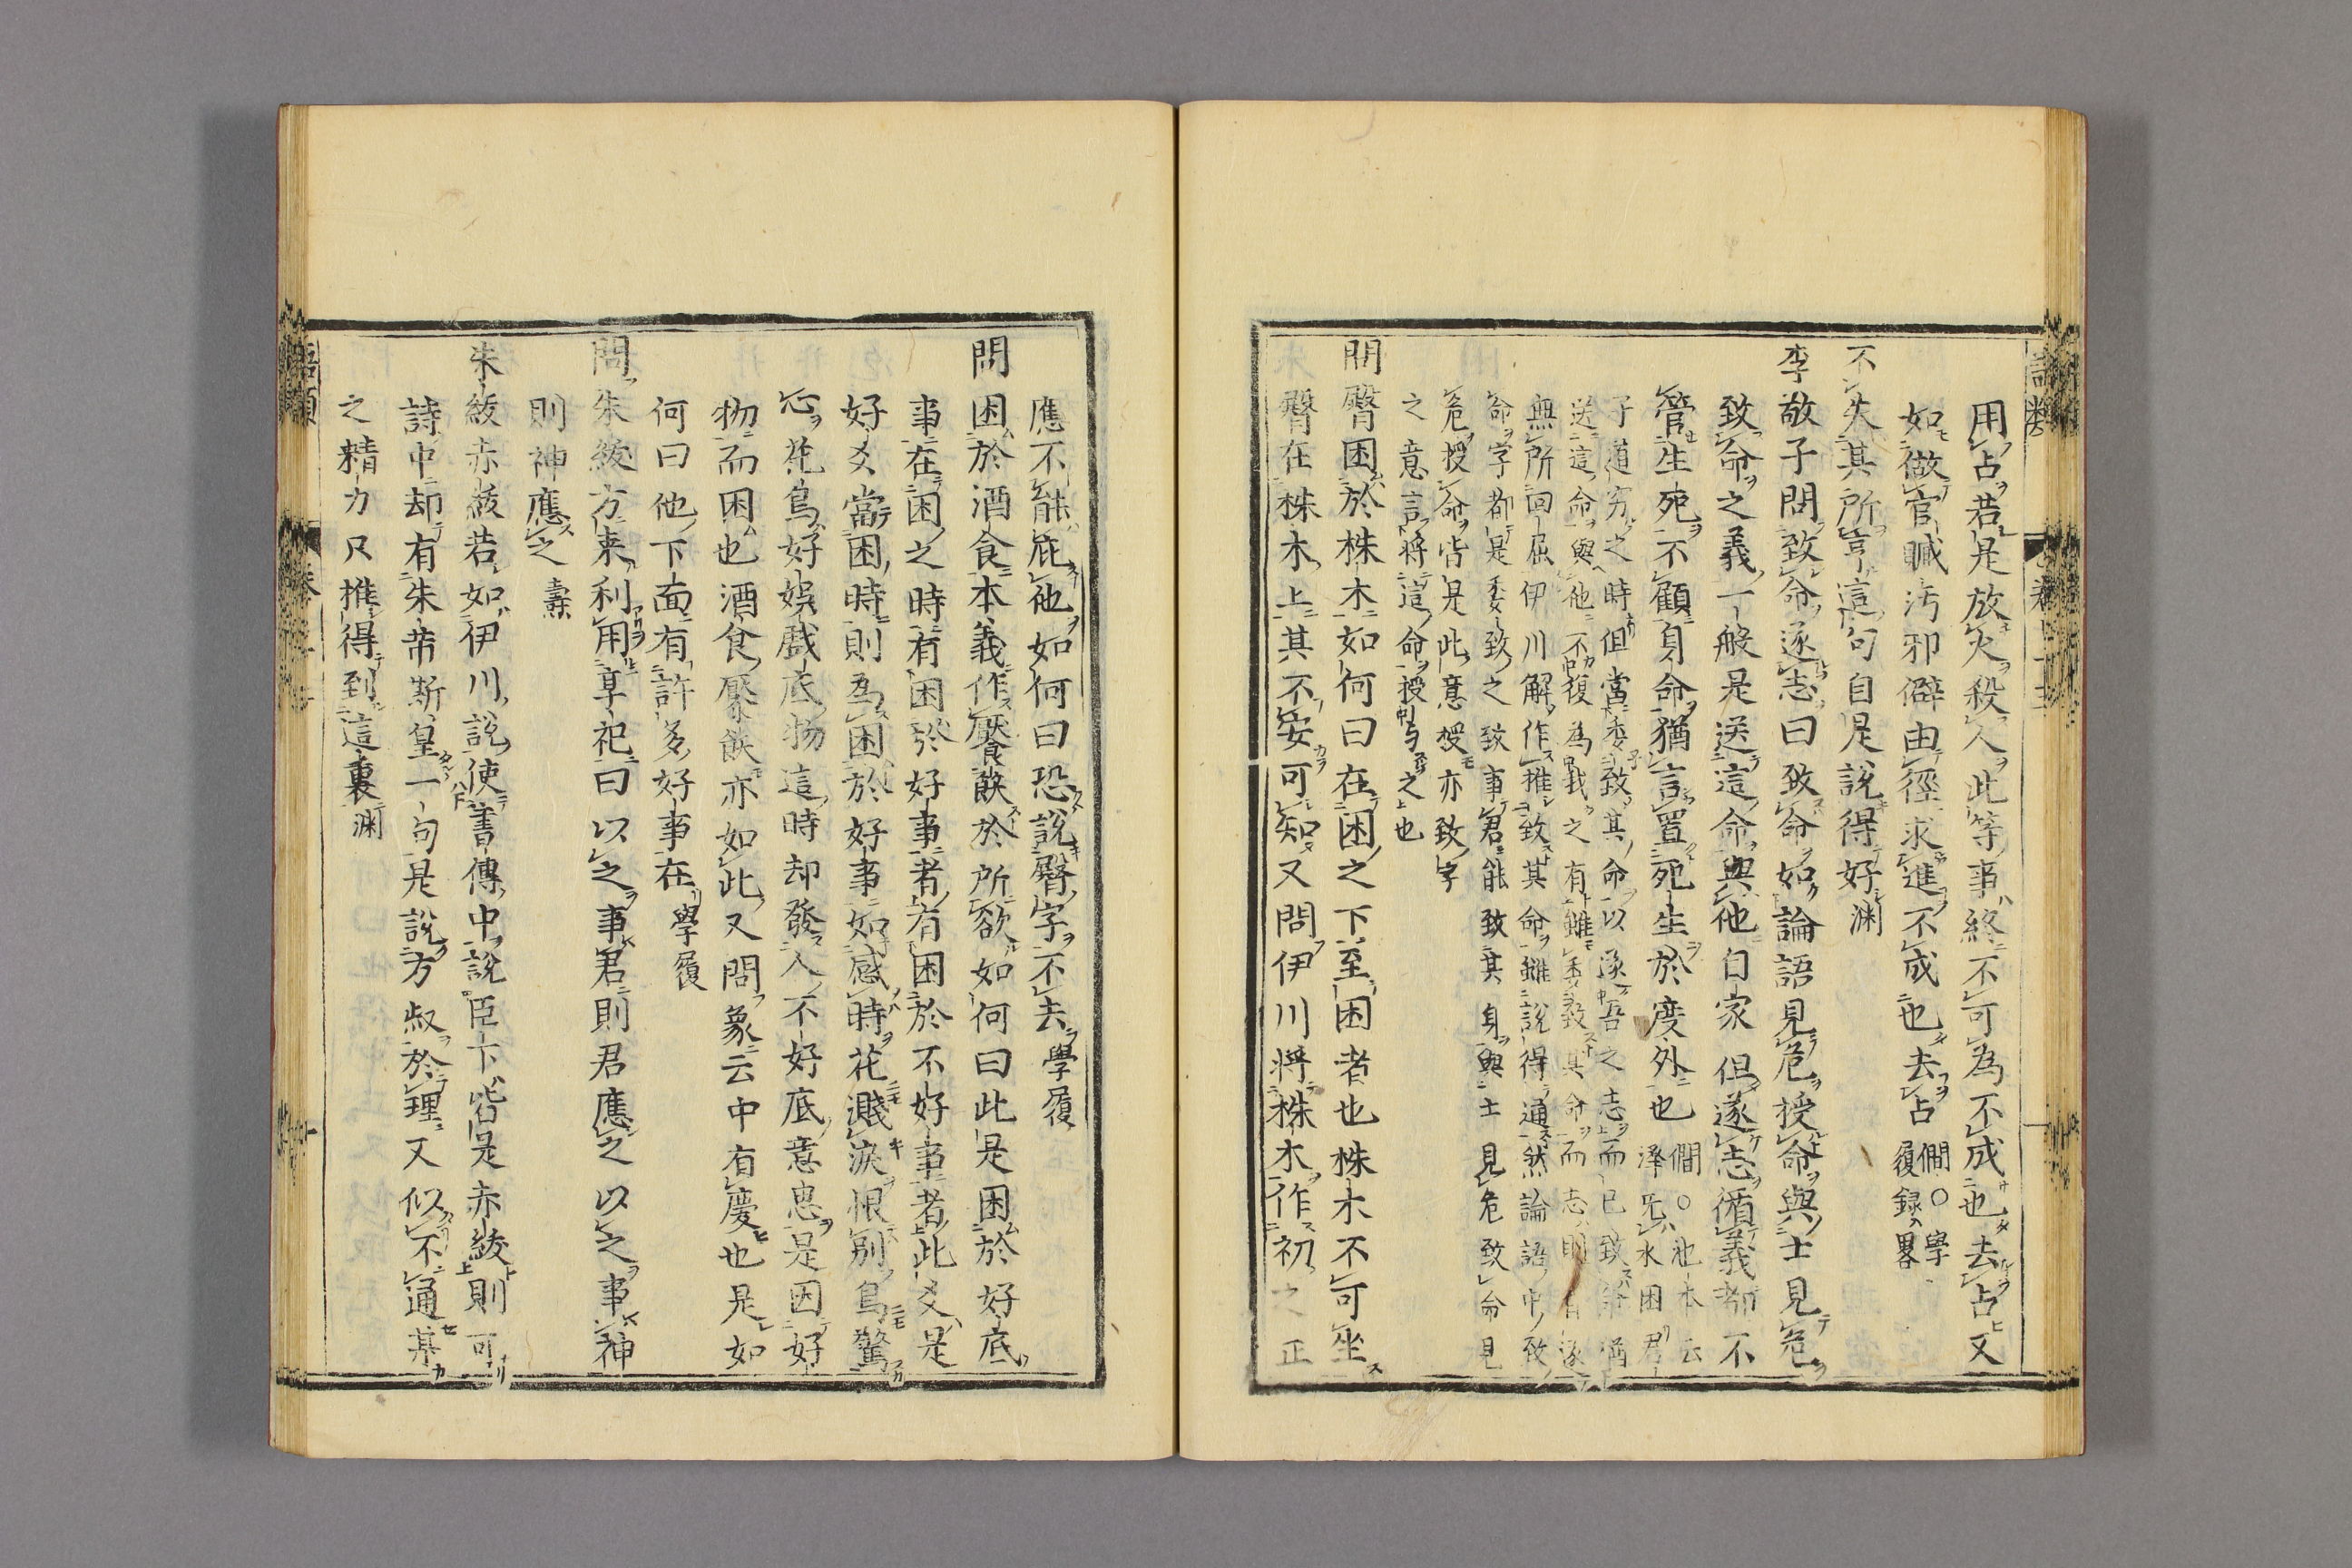 用占若是放火殺人此等事終不可為不成也去占又
如做官贓汚邪僻由徑求進不成也去占 僩○學
履録畧
不失其所亨這句自是說得好 渊
李敬子問致命遂志曰致命如論語見危授命與士見危
致命之義一般是送這命與他自家但遂志循義都不
管生死不顧身命猶言置死生於度外也 僩○池本云
澤无水困君
子道穷之時但當委致其命以遂吾之志而已致命猶
送這命與他不復為我之有雖委致其命而志則自遂
無所回屈伊川解作推致其命雖說得通然論語中致
命字都是委致之致事君能致其身與士見危致命見
危授命皆是此意授亦致字
之意言將這命授与之也
問臀困於株木如何曰在困之下至困者也株木不可坐
臀在株木上其不安可知又問伊川將株木作初之正
應不能庇他如何曰恐說臀字不去 學履
問困於酒食本義作饜飫於所欲如何曰此是困於好底
事在困之時有困於好事者有困於不好事者此爻是
好爻當困時則為困於好事如感時花濺淚恨別鳥驚
心花鳥好娯戲底物這時却發人不好底意思是因好
物而困也酒食饜飫亦如此又問象云中有慶也是如
何曰他下面有許多好事在 學履
問朱紱方来利用享祀曰以之事君則君應之以之事神
則神應之 壽
朱紱赤紱若如伊川說使書傳中說臣下皆是赤紱則可
詩中却有朱芾斯皇一句是說方叔於理又似不通某
之精力只推得到這裏 渊